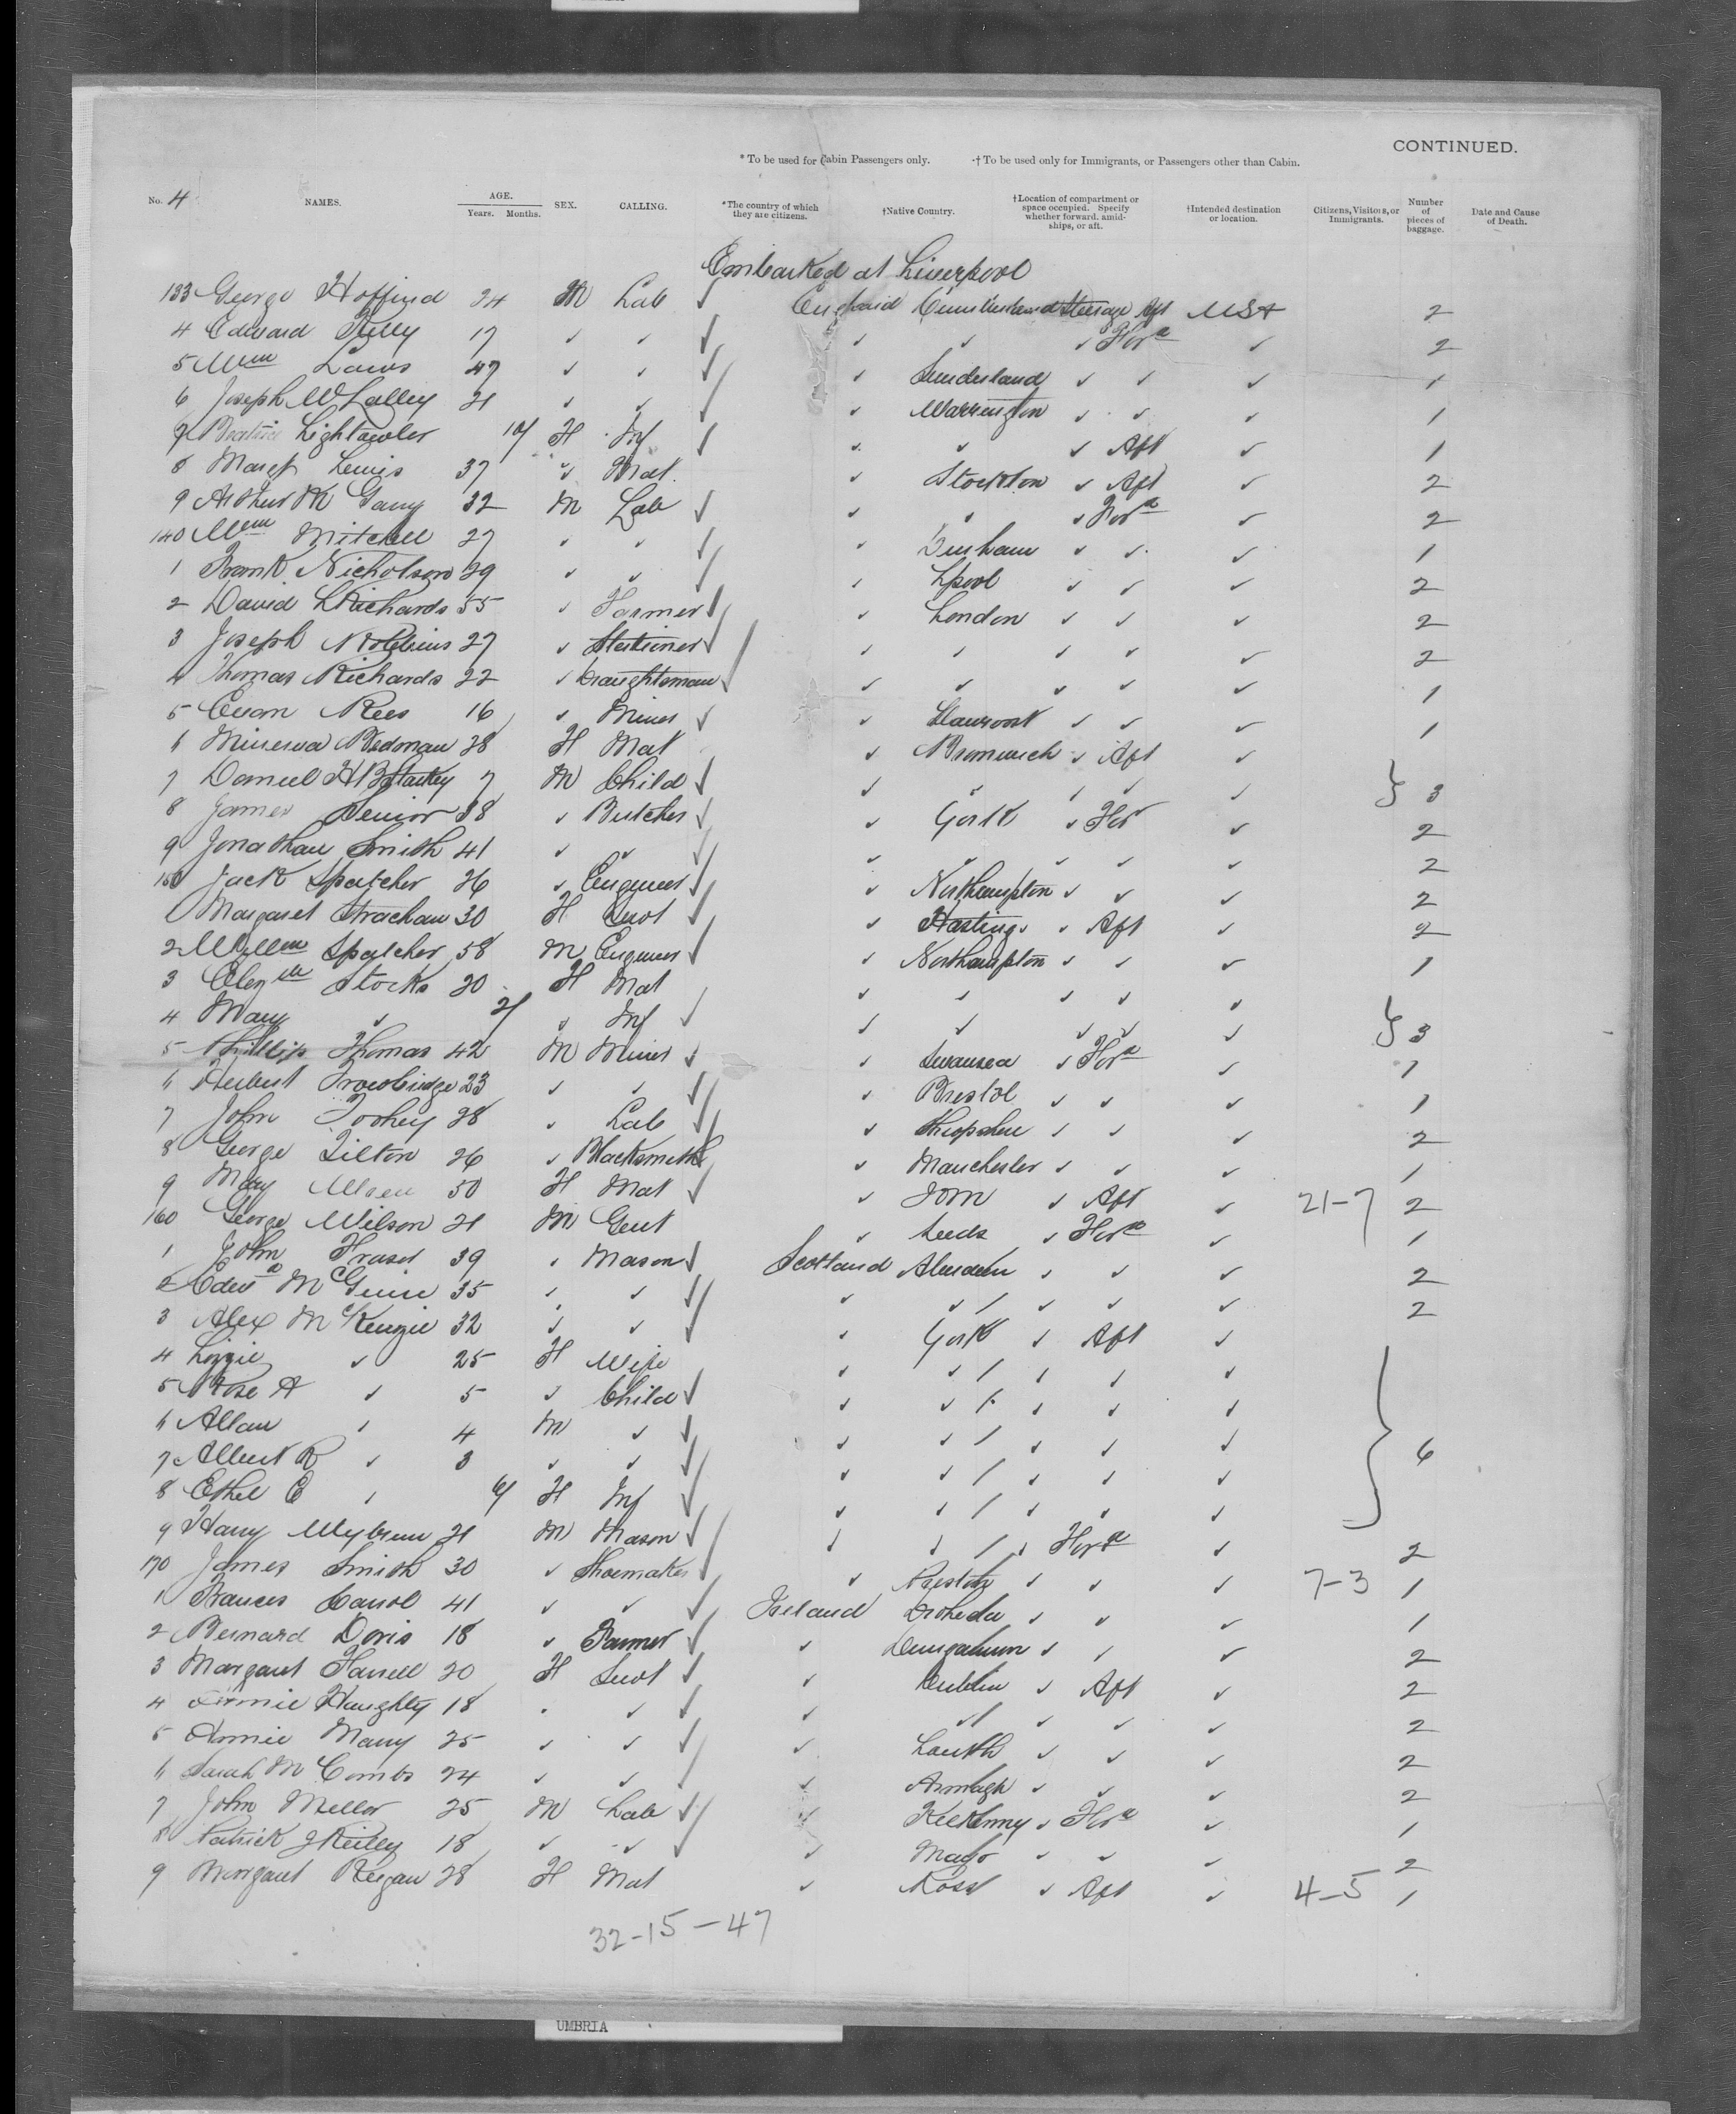 CONTINUED.
* To be used for Cabin Passengers only. † To be used only for Immigrants, or Passengers other than Cabin.
No. 4 NAMES. AGE. Years. Months. SEX. CALLING. *The country of which they are citizens. †Native Country. †Location of compartment or space occupied. Specify whether forward, amidships, or aft. †Intended destination or location. Citizens, Visitors, or Immigrants. Number of pieces of baggage. Date and Cause of Death.
Embarked at Liverpool
133 George 24 M Lab ✓ England Cumberland Steerage Aft USA 2
4 Edward Kelly 17 ✓ ✓ ✓ ✓ ✓ ✓ Ford ✓ 2
5 Wm Laws 47 ✓ ✓ ✓ ✓ Sunderland ✓ ✓ ✓ 1
6 Joseph W Lalley 21 ✓ ✓ ✓ ✓ Warrington ✓ ✓ ✓ 1
7 Lightowler 10/ F Inf ✓ ✓ ✓ ✓ Aft ✓ 1
8 Margt Lewis 37 ✓ Mat ✓ Stockton ✓ Aft ✓ 2
9 Arthur Mc Garry 32 M Lab ✓ ✓ ✓ ✓ Ford ✓ 2
140 Wm Mitchell 27 ✓ ✓ ✓ ✓ Durham ✓ ✓ ✓ 1
1 Frank Nicholson 29 ✓ ✓ ✓ ✓ Lpool ✓ ✓ ✓ 2
2 David L Richards 55 ✓ Farmer ✓ ✓ London ✓ ✓ ✓ 2
3 Joseph 27 ✓ Stationer ✓ ✓ ✓ ✓ ✓ ✓ 2
4 Thomas Richards 22 ✓ Draughtsman ✓ ✓ ✓ ✓ ✓ ✓ 1
5 Evan Rees 16 ✓ Miner ✓ ✓ Llanrwst ✓ ✓ ✓ 1
6 Minerva Redman 28 F Mat ✓ Bromwich ✓ Aft ✓
7 Daniel H B Starkey 7 M Child ✓ ✓ ✓ ✓ ✓ ✓ } 3
8 James Senior 38 ✓ Butcher ✓ ✓ York ✓ For ✓ 2
9 Jonathan Smith 41 ✓ ✓ ✓ ✓ ✓ ✓ ✓ ✓ 2
150 Jack Spatcher 26 ✓ Engineer ✓ ✓ Northampton ✓ ✓ ✓ 2
1 Margaret Strachan 30 F Servt ✓ ✓ Hastings ✓ Aft ✓ 2
2 Spatcher 58 M Engineer ✓ ✓ Northampton ✓ ✓ ✓ 1
3 Elizth Stocks 20 F Mat ✓ ✓ ✓ ✓ ✓
4 Mary ✓ F Inf ✓ ✓ ✓ ✓ ✓ ✓ } 3
5 Phillip Thomas 42 M Miner ✓ ✓ Swansea ✓ Ford ✓ 1
6 Herbert Trowbridge 23 ✓ ✓ ✓ ✓ Bristol ✓ ✓ ✓ 1
7 John Toohey 28 ✓ Lab ✓ ✓ Shropshire ✓ ✓ ✓ 2
8 George Tilton 26 ✓ Blacksmith ✓ Manchester ✓ ✓ ✓ 1
9 Mary 50 F Mat ✓ ✓ IOM ✓ Aft ✓ 21-7 2
160 George Wilson 21 M Gent ✓ Leeds ✓ Ford ✓ 1
1 John Fraser 39 ✓ Mason ✓ Scotland Aberdeen ✓ ✓ ✓ 2
2 Edwd McGuire 35 ✓ ✓ ✓ ✓ ✓ ✓ ✓ ✓ 2
3 Alex McKenzie 32 ✓ ✓ ✓ ✓ York ✓ Aft ✓
4 Lizzie ✓ 25 F Wife ✓ ✓ ✓ ✓ ✓
5 Rose A ✓ 5 ✓ Child ✓ ✓ ✓ ✓ ✓ ✓
6 Allan ✓ 4 M ✓ ✓ ✓ ✓ ✓ ✓ ✓ } 6
7 Albert R ✓ 3 ✓ ✓ ✓ ✓ ✓ ✓ ✓ ✓
8 Ethel E ✓ F Inf ✓ ✓ ✓ ✓ ✓ ✓
9 Harry 21 M Mason ✓ ✓ ✓ ✓ Ford ✓ 2
170 James Smith 30 ✓ Shoemaker ✓ ✓ Preston ✓ ✓ ✓ 7-3 1
1 Frances Carrol 41 ✓ ✓ ✓ Ireland Drogheda ✓ ✓ ✓ 1
2 Bernard Doris 18 ✓ Farmer ✓ ✓ Dungannon ✓ ✓ ✓ 2
3 Margaret Farrell 20 F Servt ✓ ✓ Dublin ✓ Aft ✓ 2
4 Haughey 18 ✓ ✓ ✓ ✓ ✓ ✓ ✓ ✓ 2
5 Annie Many 25 ✓ ✓ ✓ ✓ Louth ✓ ✓ ✓ 2
6 Sarah McCombs 24 ✓ ✓ ✓ ✓ Armagh ✓ ✓ ✓ 2
7 John Mellor 25 M Lab ✓ ✓ Kilkenny ✓ Ford ✓ 1
8 Patrick J Reilly 18 ✓ ✓ ✓ ✓ Mayo ✓ ✓ ✓ 2
9 Margaret Regan 28 F Mat ✓ Ross ✓ Aft ✓ 4-5 1
32-15-47
UMBRIA